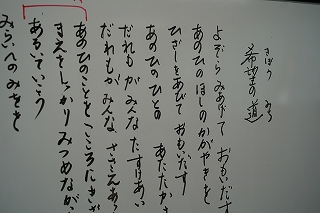 きぼう みち
希望の道
よぞらみあげて おもいだす
あのひのほしのかがやきを
ひざしをあびて おもいだす
あのひのひとの あたたか
だれもがみんな たすけあい
だれもがみんな ささえあ
あのひのことを こころにきざ
まえをしっかり みつめなが
あるいていこう
みらいへのみちを